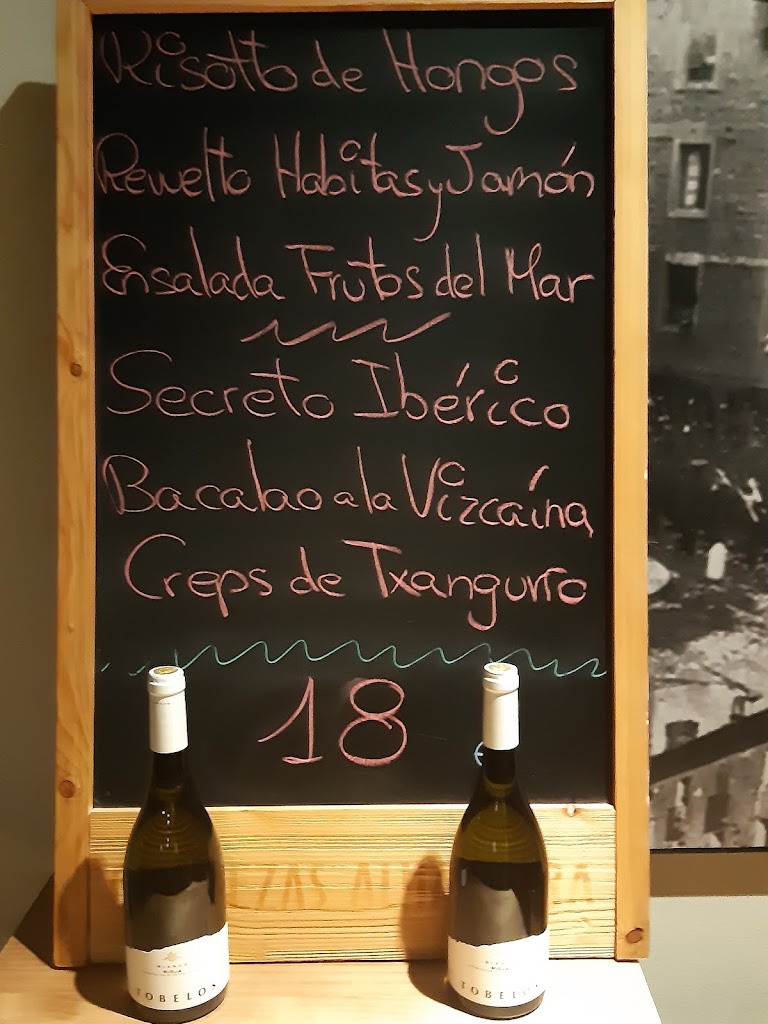 Risotto de Hongos
Revuelto Habitas y Jamón
Ensalada Frutos del Mar
Secreto Ibérico
Bacalao a la Vizcaína
Creps de Txangurro
18 €
BLANCO
RIOJA
TOBELOS
RIOJA
TOBELOS